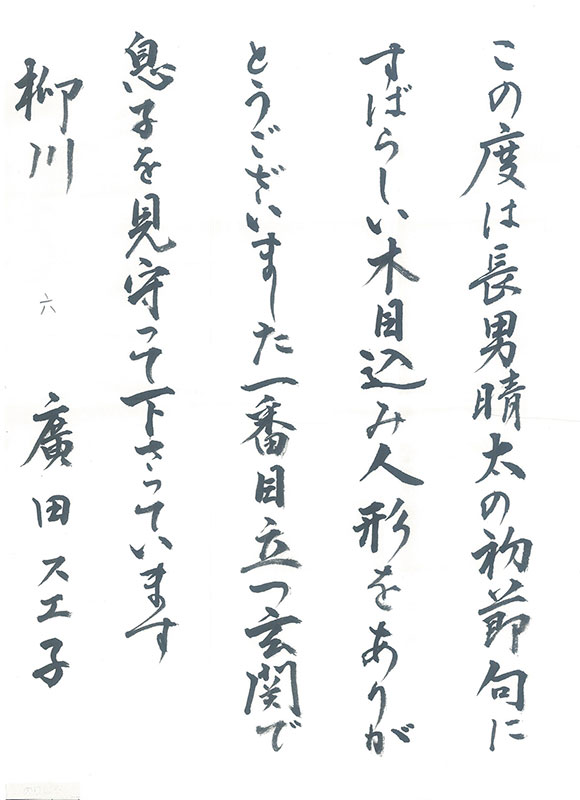 この度は長男晴太の初節句に
すばらしい木目込み人形をありが
とうございました一番目立つ玄関で
息子を見守って下さっています
柳川 六 廣田スエ子